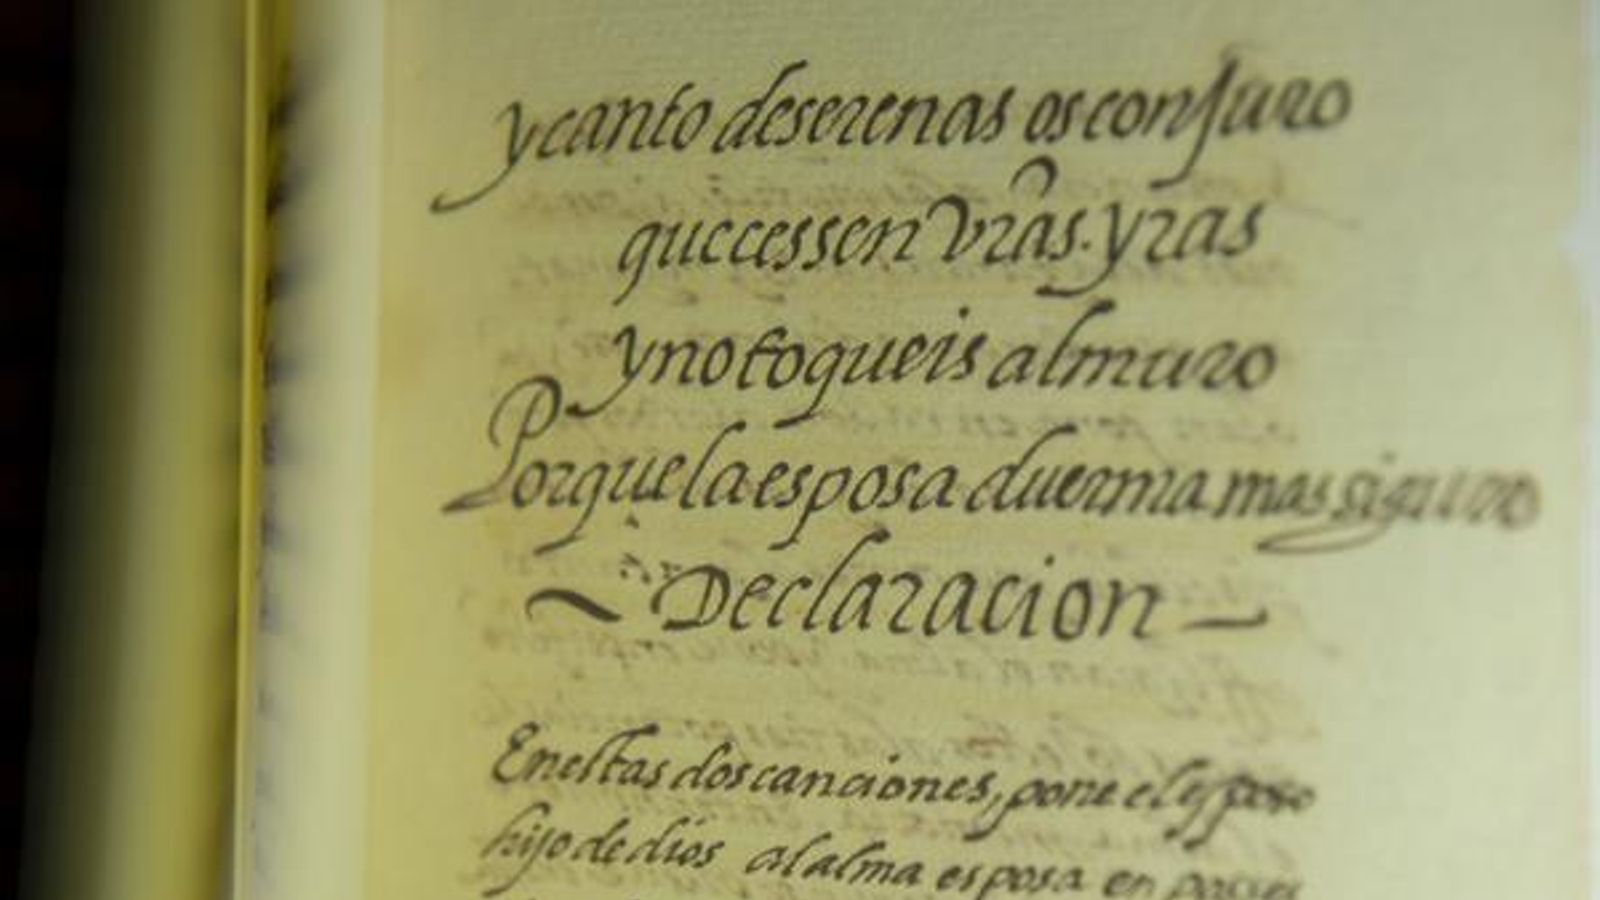 y canto de serenas os conjuro
que cessen vr̃as. yras
y no toqueis al muro
Porque la esposa duerma mas siguro
~ Declaracion ~
En estas dos canciones, pone el esposo
hijo de dios al alma esposa en